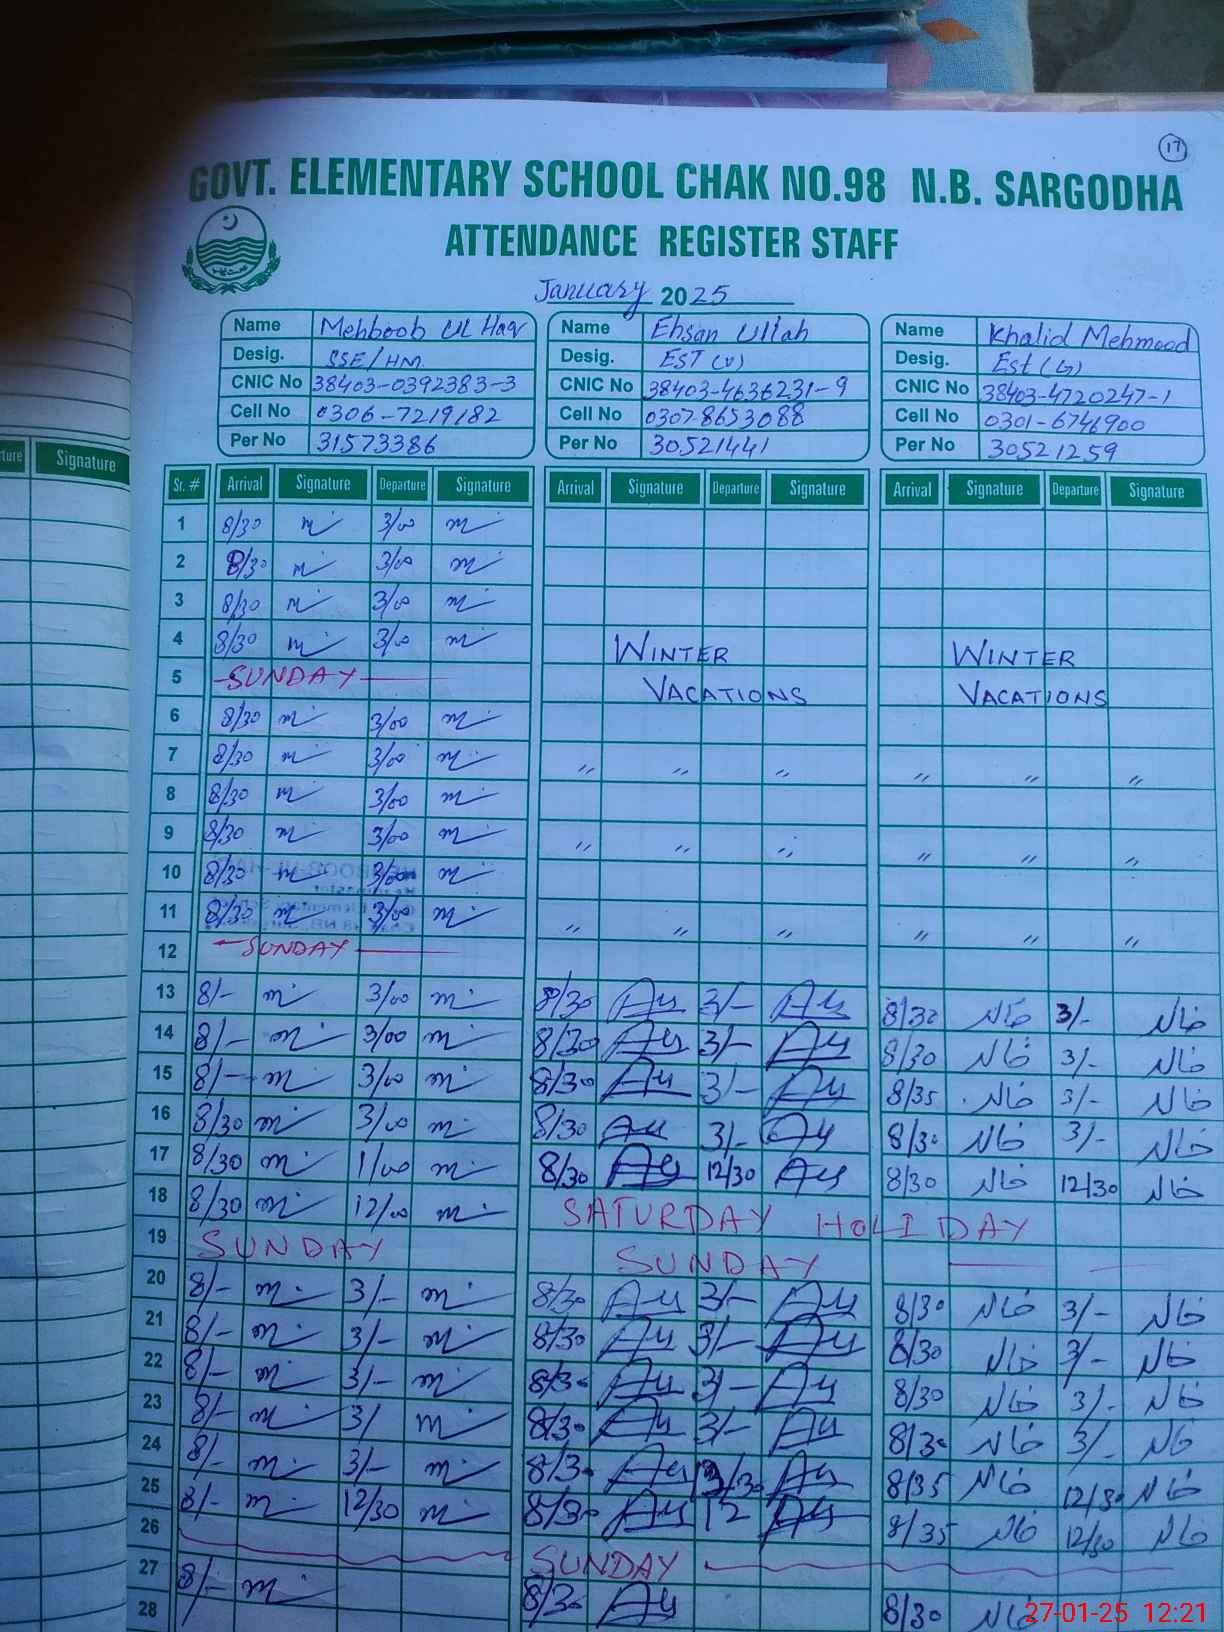 17
GOVT. ELEMENTARY SCHOOL CHAK NO.98 N.B. SARGODHA
ATTENDANCE REGISTER STAFF
January 2025
Name Mehboob Ul Haq Name Ehsan Ullah Name Khalid Mehmood
Desig. SSE/HM Desig. EST (v) Desig. Est (G)
CNIC No 38403-0392383-3 CNIC No 38403-4636231-9 CNIC No 38403-4720247-1
Cell No 0306-7219182 Cell No 0307-8653088 Cell No 0301-6746900
Per No 31573386 Per No 30521441 Per No 30521259
Signature
Sr. # Arrival Signature Departure Signature Arrival Signature Departure Signature Arrival Signature Departure Signature
1 8/30 3/00
2 8/30 3/00
3 8/30 3/00
4 8/30 3/00 WINTER WINTER
5 SUNDAY VACATIONS VACATIONS
6 8/30 3/00
7 8/30 3/00 〃 〃 〃 〃 〃 〃
8 8/30 3/00
9 8/30 3/00 〃 〃 〃 〃 〃 〃
10 8/30 3/00
11 8/30 3/00 〃 〃 〃 〃 〃 〃
12 SUNDAY
13 8/- 3/00 8/30 3/- 8/30 خالد 3/- خالد
14 8/- 3/00 8/30 3/- 8/30 خالد 3/- خالد
15 8/- 3/00 8/30 3/- 8/35 خالد 3/- خالد
16 8/30 3/00 8/30 3/- 8/30 خالد 3/- خالد
17 8/30 1/00 8/30 12/30 8/30 خالد 12/30 خالد
18 8/30 12/00 SATURDAY HOLIDAY
19 SUNDAY SUNDAY
20 8/- 3/- 8/30 3/- 8/30 خالد 3/- خالد
21 8/- 3/- 8/30 3/- 8/30 خالد 3/- خالد
22 8/- 3/- 8/30 3/- 8/30 خالد 3/- خالد
23 8/- 3/ 8/30 3/- 8/30 خالد 3/- خالد
24 8/- 3/- 8/30 8/35 خالد 12/30 خالد
25 8/- 12/30 8/30 12 8/35 خالد 12/30 خالد
26 SUNDAY
27 8/- 8/30 8/30 خالد
28
27-01-25 12:21